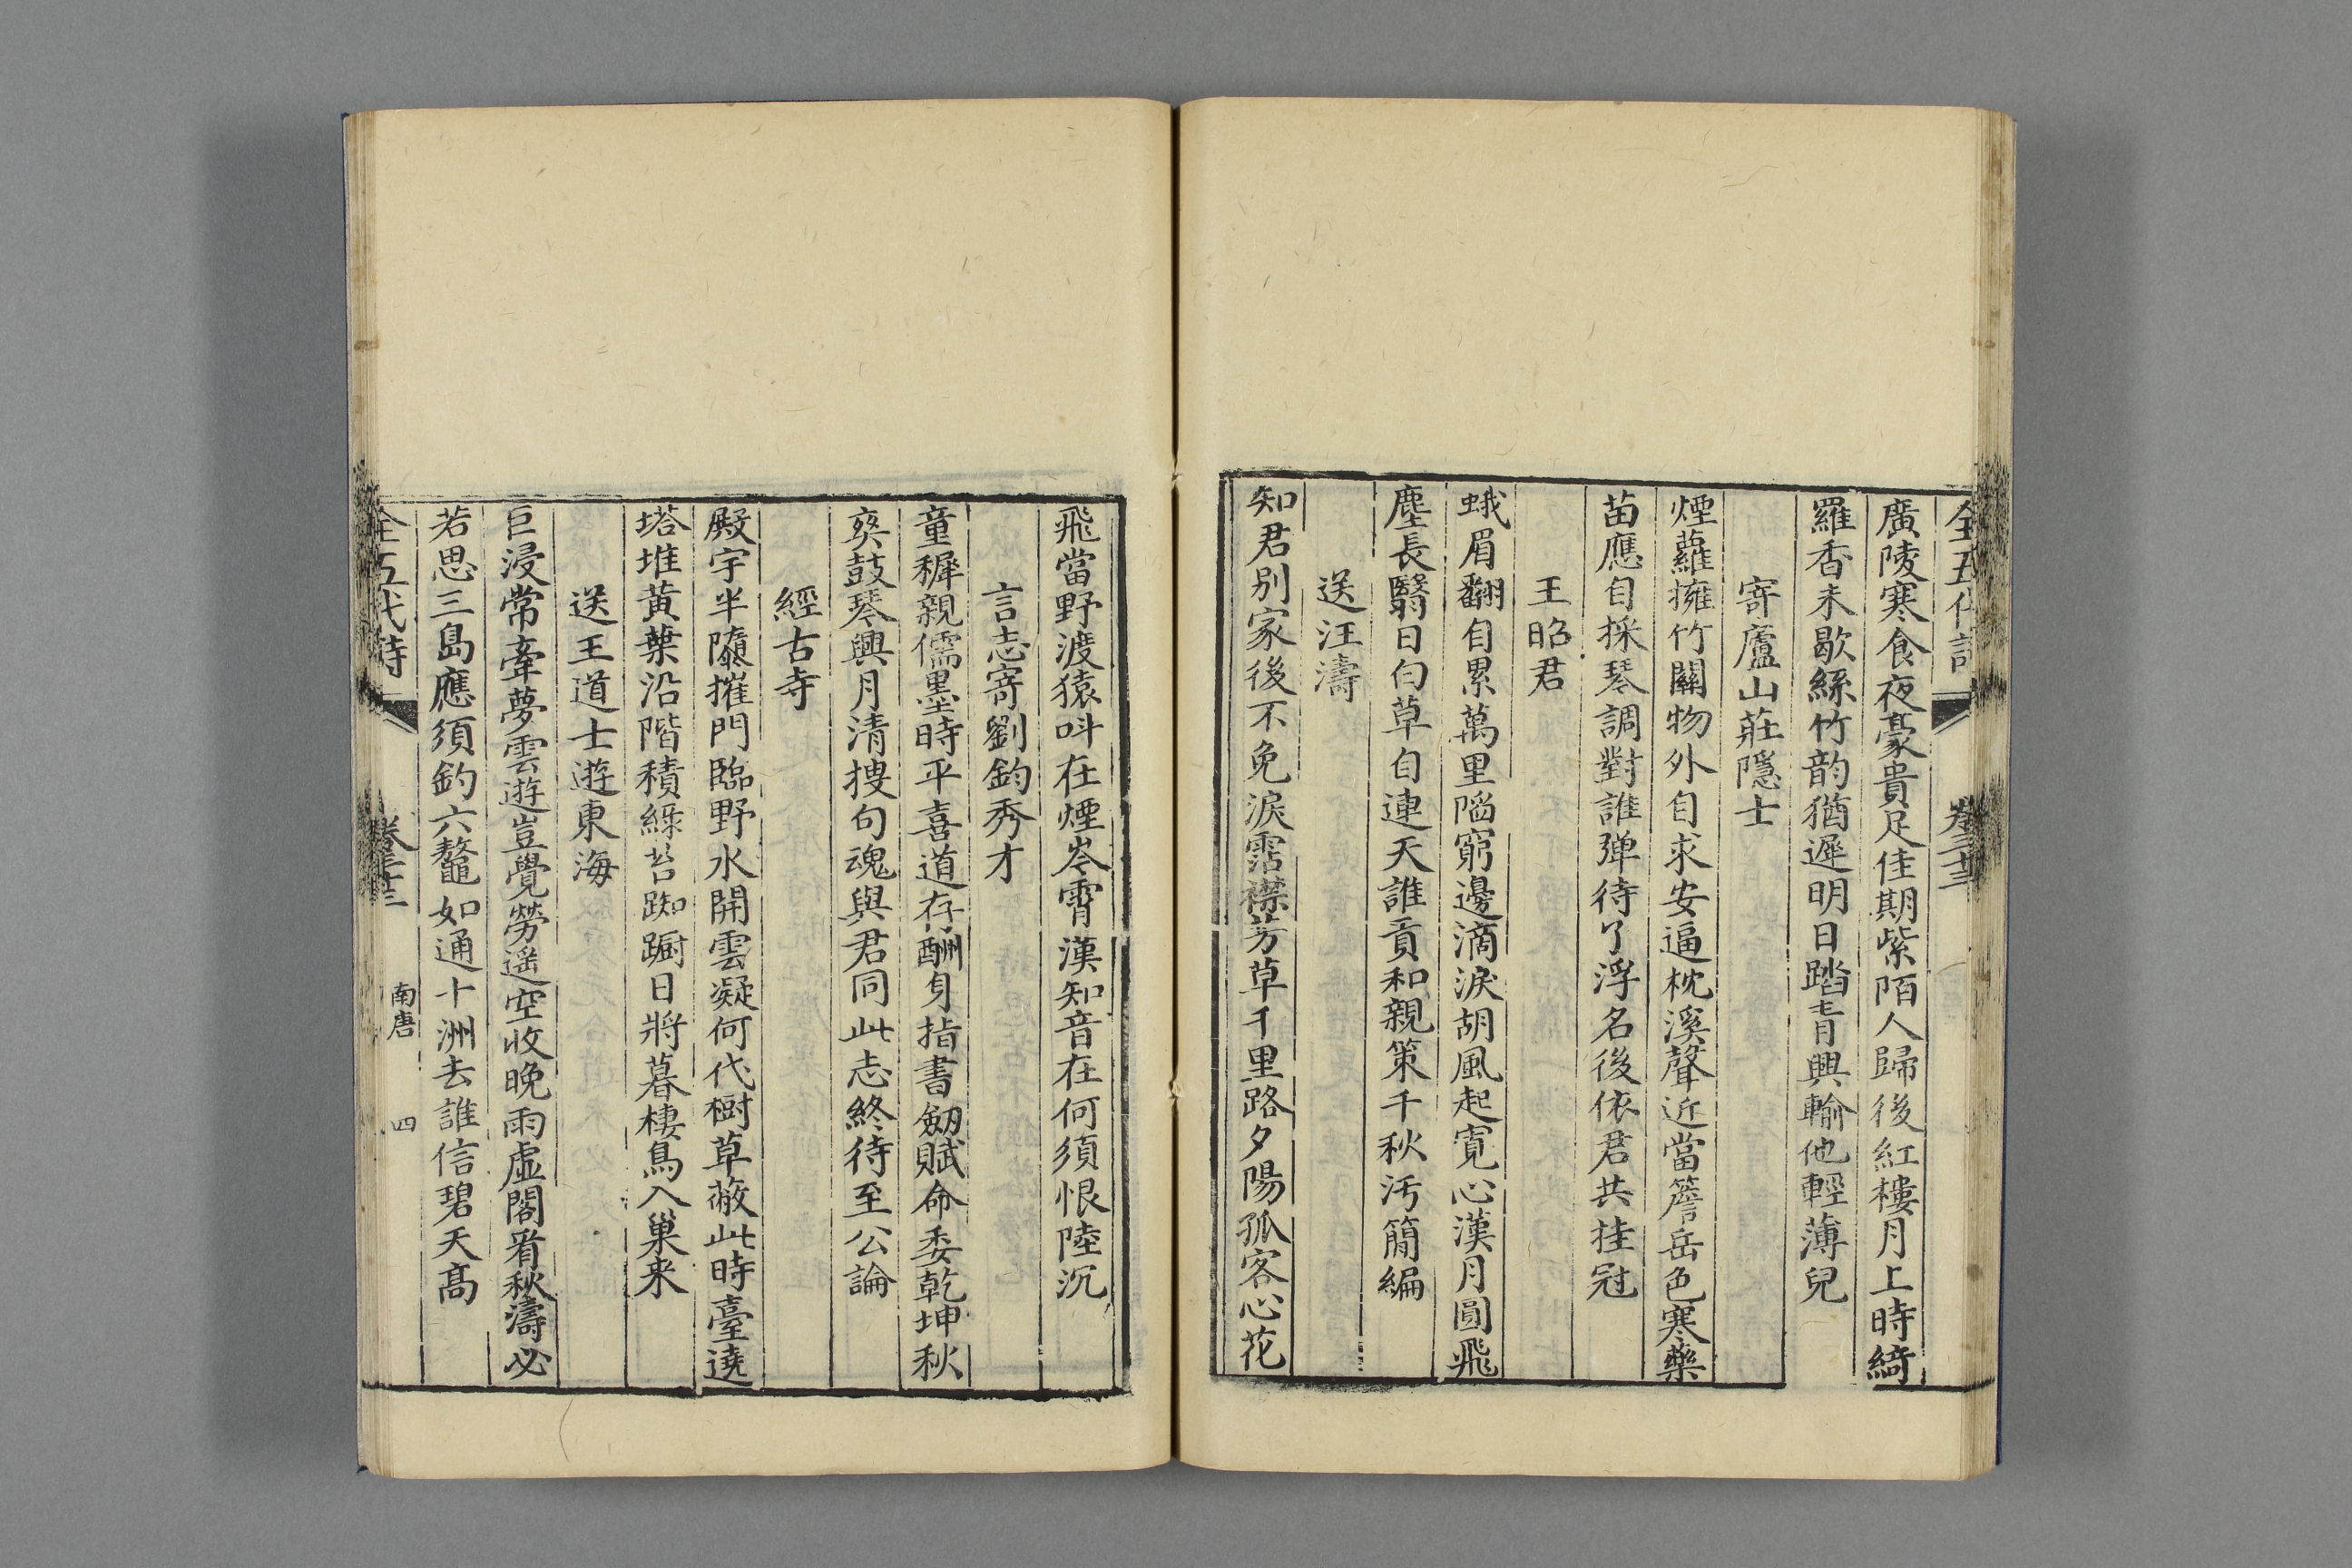 全五代詩 卷三十三
廣陵寒食夜豪貴足佳期紫陌人歸後紅樓月上時綺
羅香未歇絲竹韵猶遲明日踏青興輸他輕薄兒
寄廬山莊隱士
煙蘿擁竹關物外自求安逼枕溪聲近當簷岳色寒藥
苗應自採琴調對誰弹待了浮名後依君共挂冠
王昭君
蛾眉翻自累萬里陷窮邊滴淚胡風起寛心漢月圓飛
塵長翳日白草自連天誰貢和親策千秋汚簡編
送汪濤
知君別家後不免淚霑襟芳草千里路夕陽孤客心花
飛當野渡猿呌在煙岑霄漢知音在何須恨陸沉
言志寄劉鈞秀才
童穉親儒墨時平喜道存酬身指書劒賦命委乾坤秋
爽鼓琴興月清搜句魂與君同此志終待至公論
經古寺
殿宇半隳摧門臨野水開雲凝何代樹草蔽此時臺遶
塔堆黃葉沿階積綠苔踟蹰日將暮棲鳥入巢来
送王道士遊東海
巨浸常牽夢雲遊豈覺勞遥空收晚雨虛閣看秋濤必
若思三島應須釣六鼇如通十洲去誰信碧天高
全五代詩 卷三十三 南唐 四